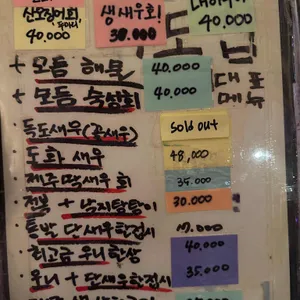 산오징어회
40.000
생새우회!
30.000
40.000
+ 모듬 해물 40.000
+ 모듬 숙성회 40.000
대표
메뉴
· 독도새우(꽃새우) Sold out
· 도화 새우 48,000
· 제주딱새우 회 35.000
· 전복 + 낙지탕탕이 30.000
· 독방 단새우한접시 17.000
· 최고급 우니한상 40,000
· 우니 + 단새우한접시 35.000